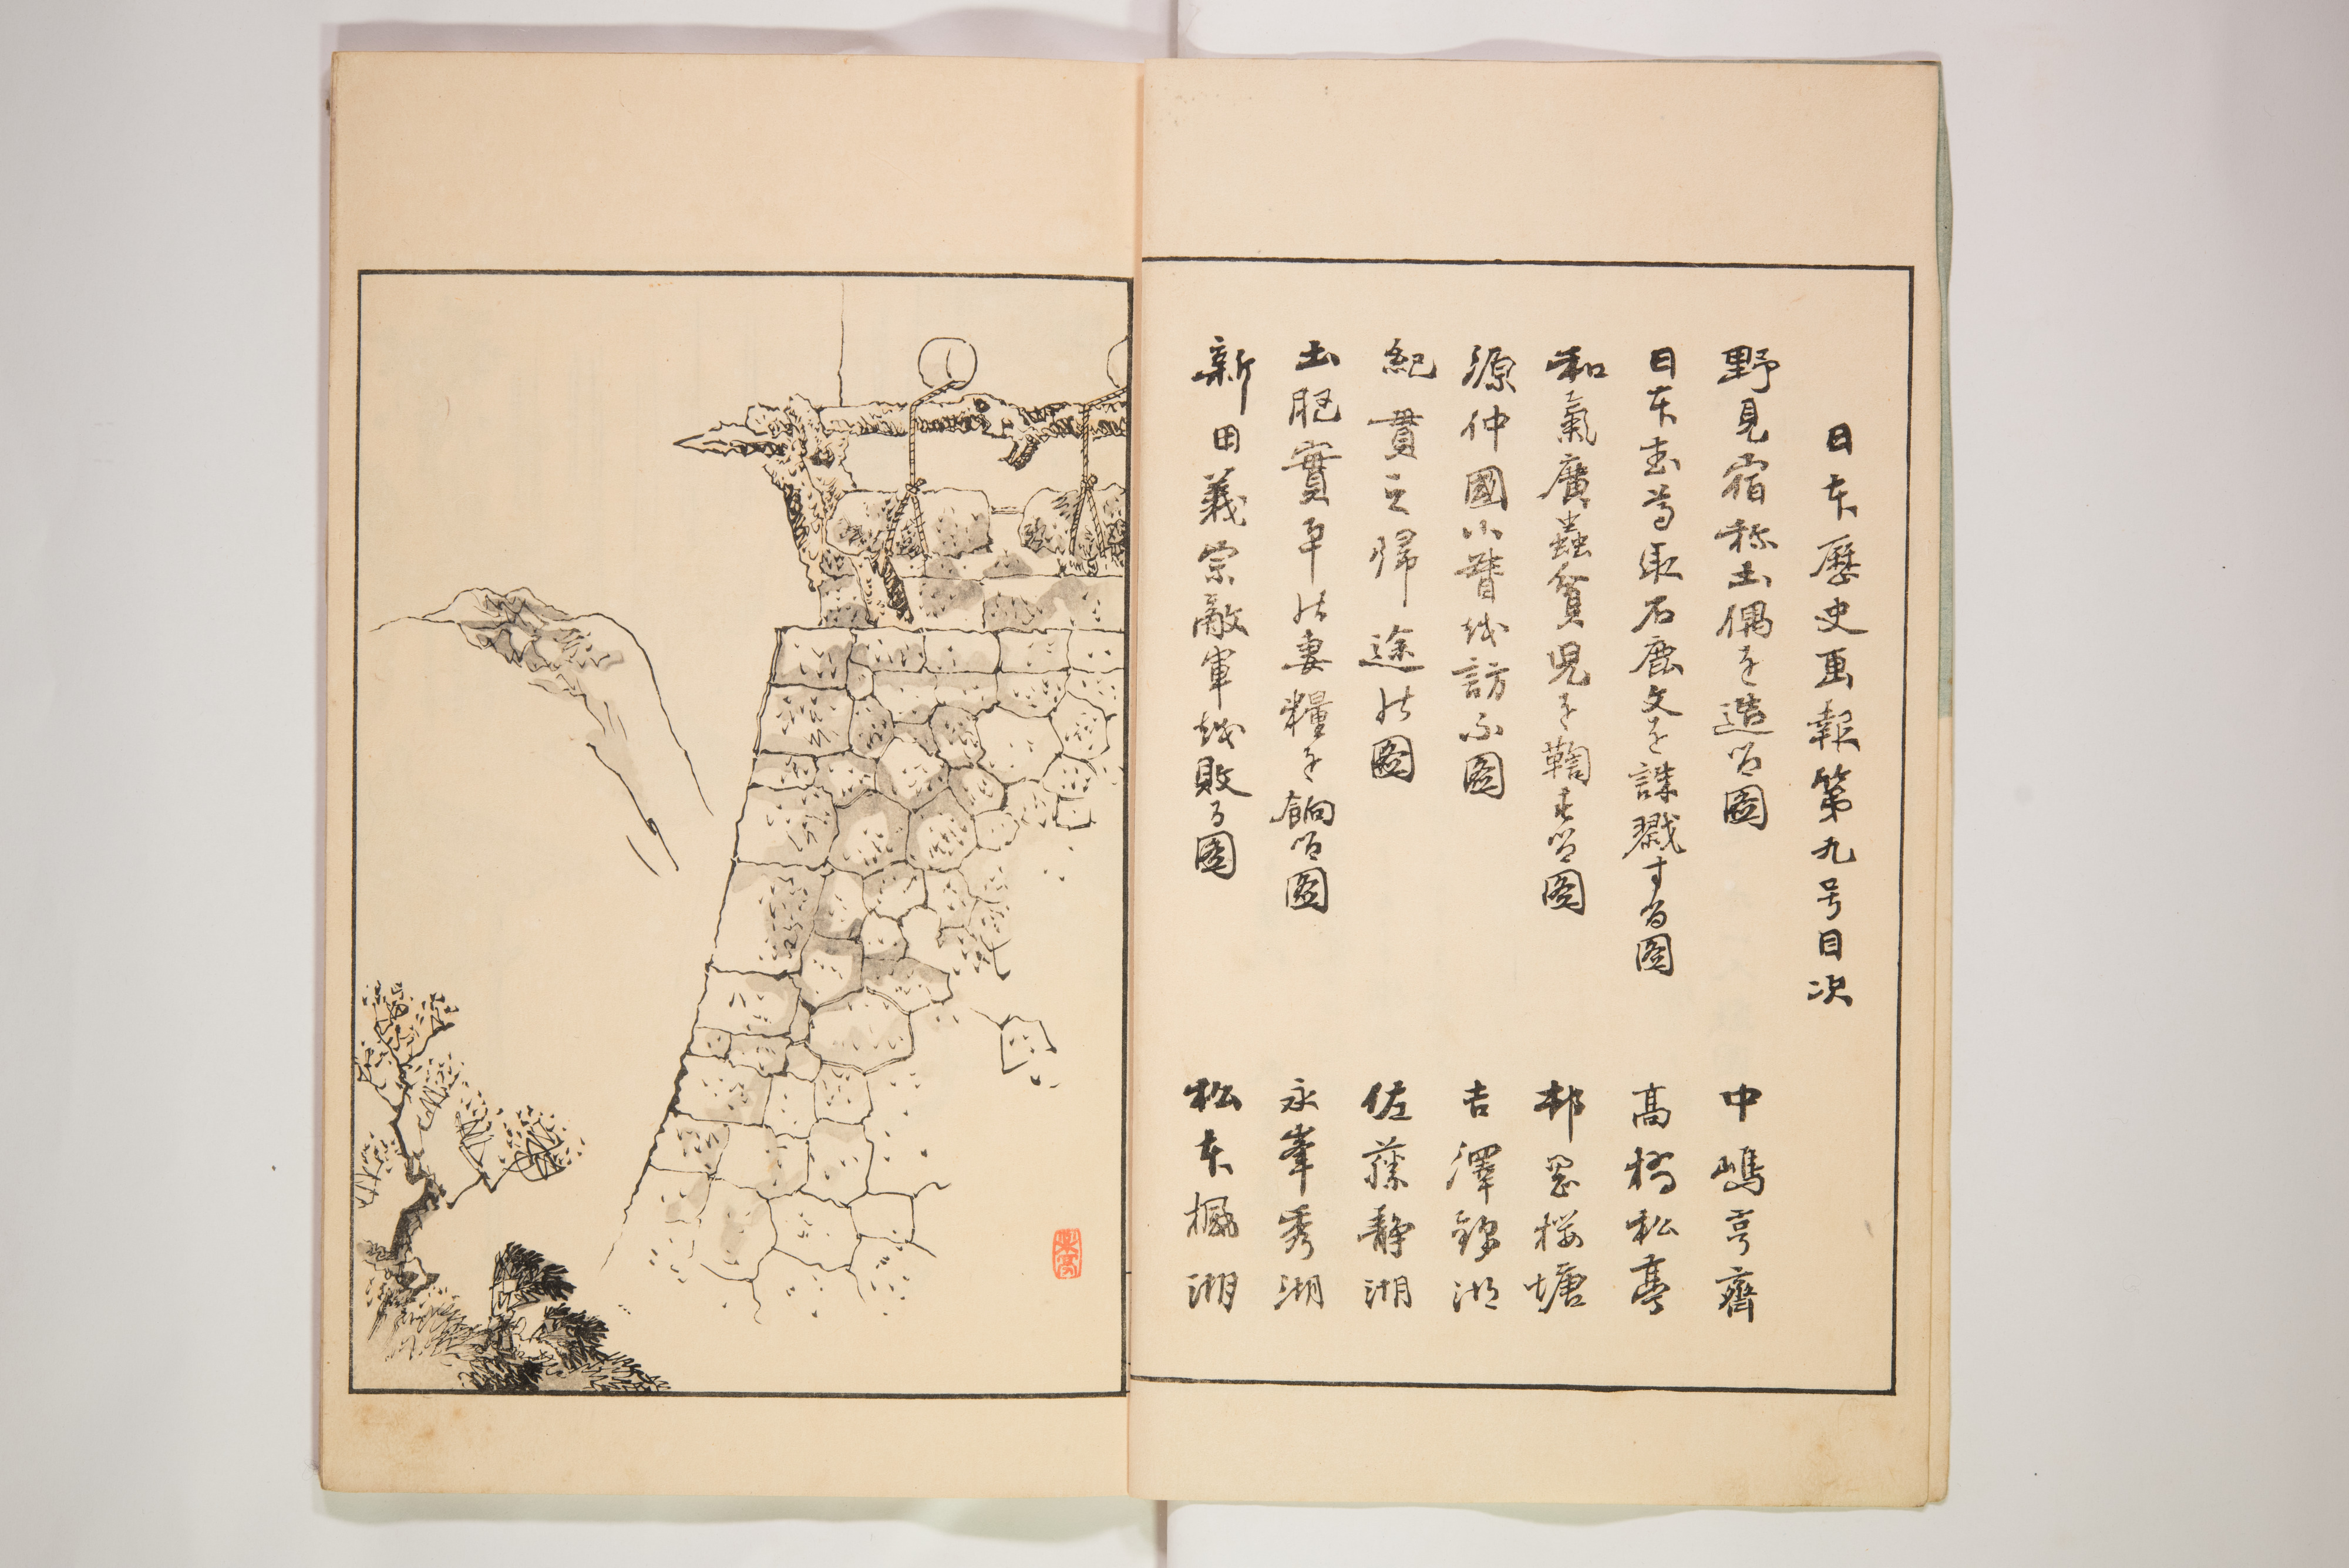 日本歴史画報第九号目次
野見宿祢土偶を造る圖 中嶋亨齋
日本武尊取石鹿文を誅戮する圖 高橋松亭
和氣廣蟲貧児を鞠する圖 邨岡櫻塘
源仲國小督を訪ふ圖 吉澤錦湖
紀貫之帰途の圖 佐藤静湖
土肥實平の妻糧を餉る圖 永峯秀湖
新田義宗敵軍を敗る圖 松本楓湖